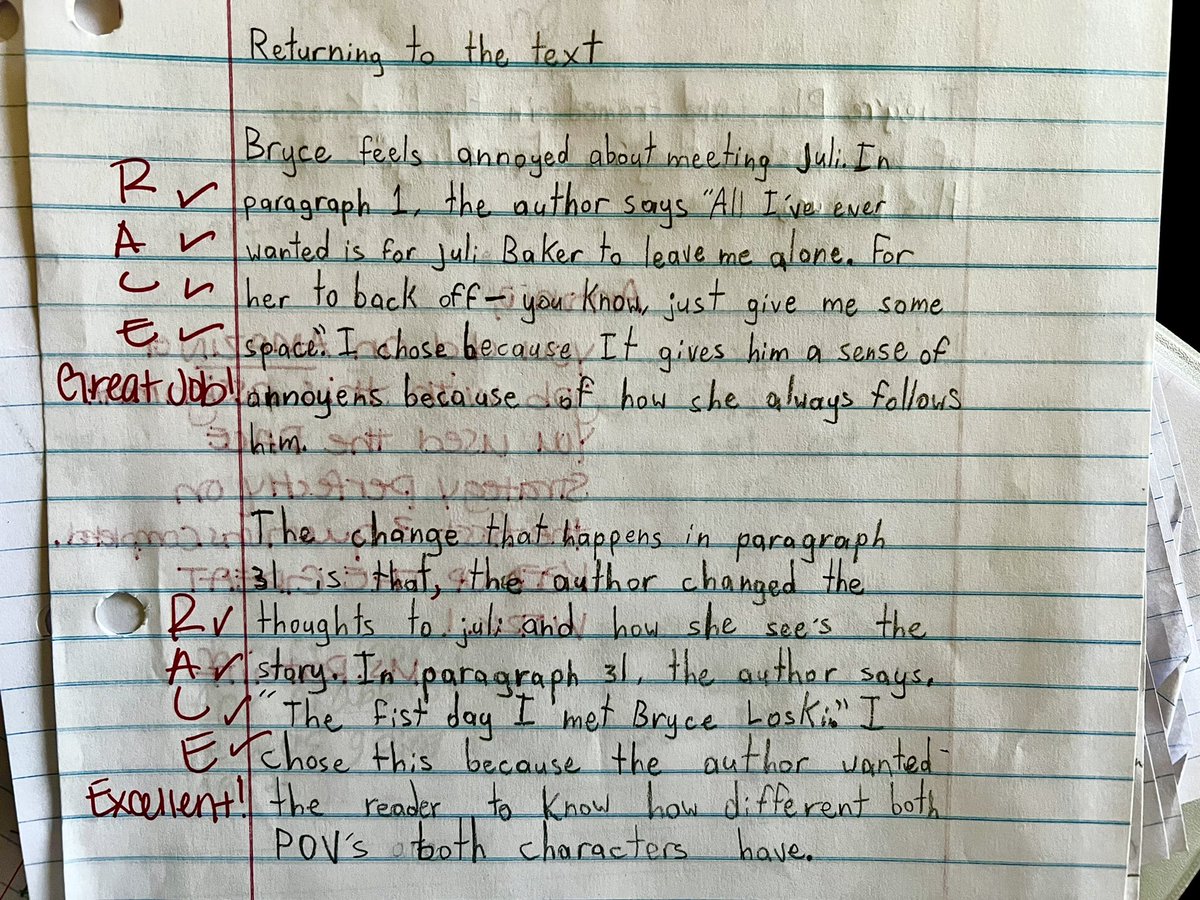 Returning to the text
Bryce feels annoyed about meeting Juli. In
R ✓ paragraph 1, the author says "All I've ever
A ✓ wanted is for Juli Baker to leave me alone. For
C ✓ her to back off- you know, just give me some
E ✓ space". I chose because It gives him a sense of
Great Job! annoyens because of how she always follows
him.
The change that happens in paragraph
31 is that, the author changed the
R ✓ thoughts to juli and how she see's the
A ✓ story. In paragraph 31, the author says,
C ✓ "The fist day I met Bryce Loski." I
E ✓ chose this because the author wanted
Excellent! the reader to know how different both
POV's both characters have.